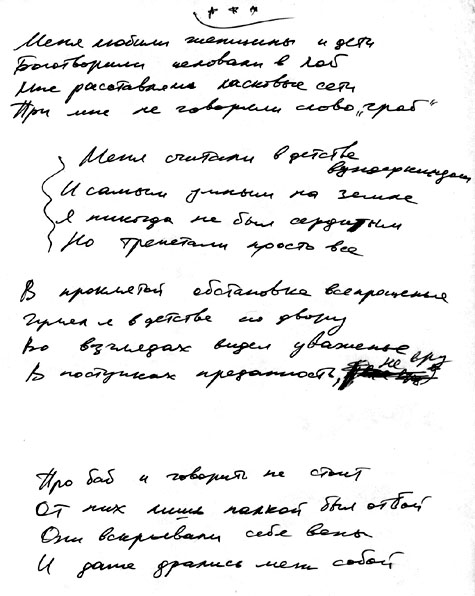 * * *
Меня любили женщины и дети
Боготворили целовали в лоб
Мне расставляли ласковые сети
При мне не говорили слово „гроб“
Меня считали в детстве вундеркиндом
И самым умным на земле
Я никогда не был сердитым
Но трепетали просто все
В проклятой обстановке всепрощенья
Гулял я в детстве по двору
Во взглядах видел уваженье
В поступках преданность, не вру
Про баб и говорить не стоит
От них лишь палкой был отбой
Они вскрывали себе вены
И даже дрались меж собой